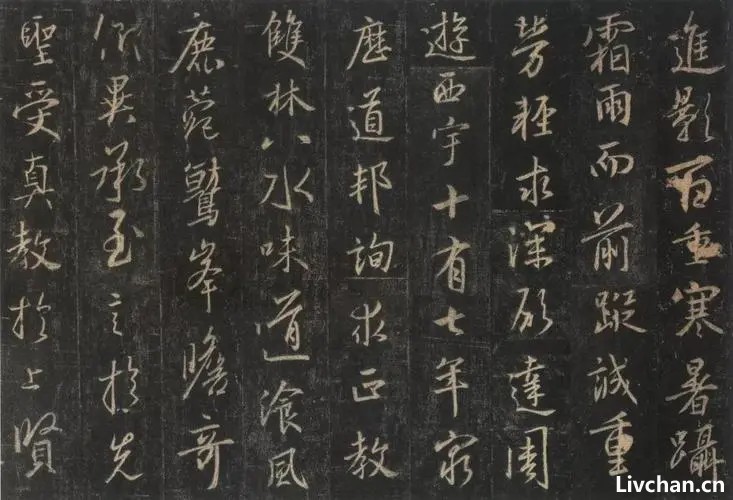 進影百重寒暑躡
霜雨而前蹤誠重
勞輕求深願達周
遊西宇十有七年窮
歷道邦詢求正教
雙林八水味道飡風
鹿菀鷲峯瞻奇
仰異承至言於先
聖受真教於上賢
Livchan.cn